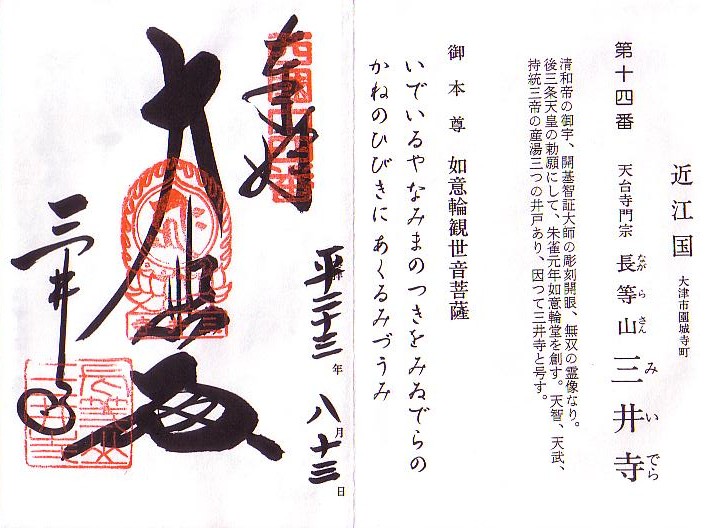 近江国 大津市園城寺町
第十四番 天台寺門宗 長等山 三井寺
ながらさん みいでら
清和帝の御宇、開基智証大師の彫刻開眼、無双の霊像なり。
後三条天皇の勅願にして、朱雀元年如意輪堂を創す。天智、天武、
持統三帝の産湯三つの井戸あり、因つて三井寺と号す。
御本尊 如意輪観世音菩薩
いでいるやなみまのつきをみゐでらの
かねのひびきにあくるみづうみ
奉拝
平二十三年八月十三日
大悲殿
三井寺